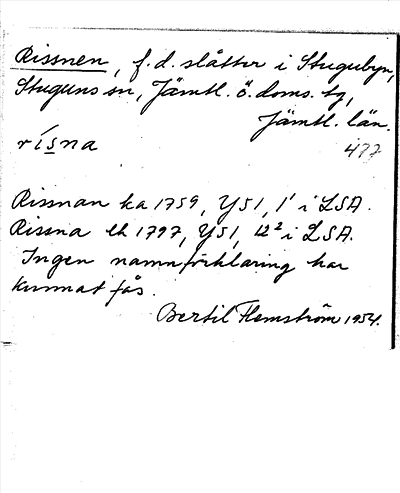 Rissnen, f.d. slåtter i Stugubyn,
Stuguns sn, Jämtl. ö. doms. tg,
Jämtl. län.
rísna
477
Rissnan ka 1759, Y51, 1¹ i LSA.
Rissna lh 1797, Y51, 12² i LSA.
Ingen namnförklaring har
kunnat fås.
Bertil Flemström 1954.